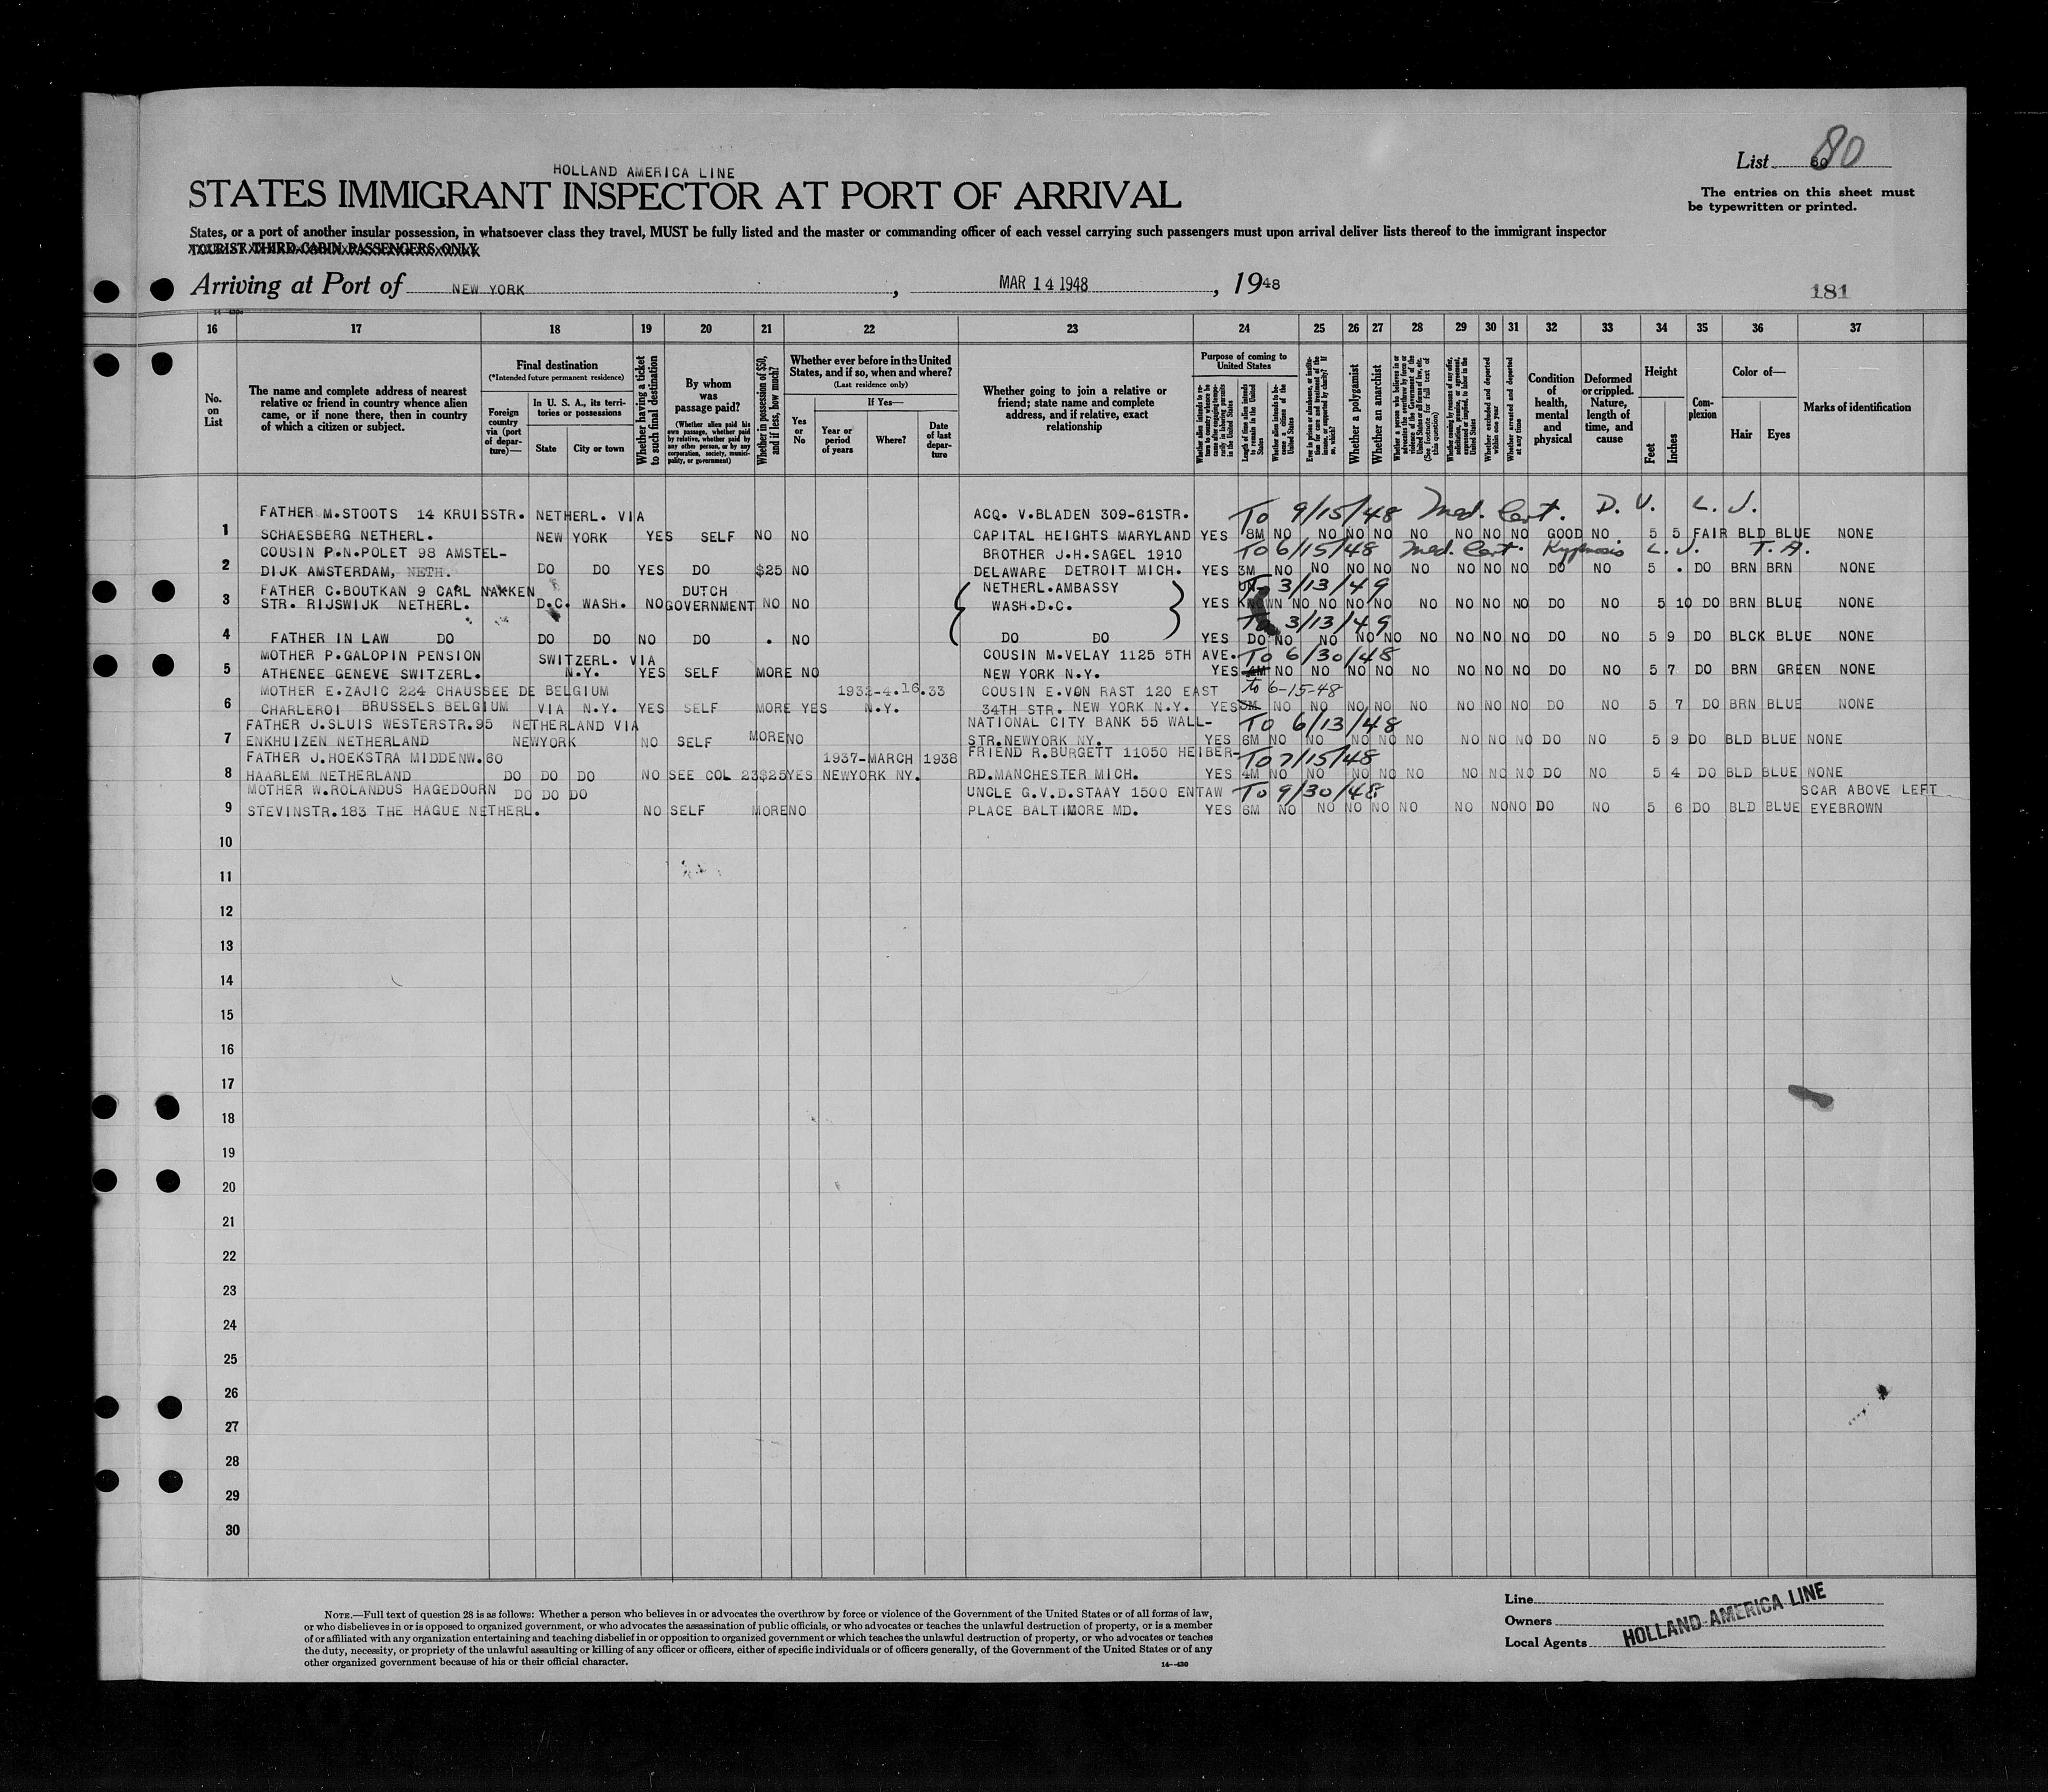 List 80
80
HOLLAND AMERICA LINE
STATES IMMIGRANT INSPECTOR AT PORT OF ARRIVAL
The entries on this sheet must
be typewritten or printed.
States, or a port of another insular possession, in whatsoever class they travel, MUST be fully listed and the master or commanding officer of each vessel carrying such passengers must upon arrival deliver lists thereof to the immigrant inspector
TOURIST THIRD CABIN PASSENGERS ONLY
Arriving at Port of NEW YORK, MAR 14 1948, 1948
181
16 17 18 19 20 21 22 23 24 25 26 27 28 29 30 31 32 33 34 35 36 37
No. on List
The name and complete address of nearest
relative or friend in country whence alien
came, or if none there, then in country
of which a citizen or subject.
Final destination
(*Intended future permanent residence)
Foreign country via (port of departure)—
In U. S. A., its territories or possessions
State
City or town
Whether having a ticket to such final destination
By whom was passage paid?
(Whether alien paid his own passage, whether paid by relative, whether paid by any other person, or by any corporation, society, municipality, or government)
Whether in possession of $50, and if less, how much?
Whether ever before in the United States, and if so, when and where?
(Last residence only)
Yes or No
If Yes—
Year or period of years
Where?
Date of last departure
Whether going to join a relative or
friend; state name and complete
address, and if relative, exact
relationship
Purpose of coming to United States
Length of time alien intends to remain in the United States
Whether alien intends to become a citizen of the United States
Whether a polygamist
Whether an anarchist
(See footnote for full text of this question)
Whether excluded and deported within one year
Whether arrested and deported at any time
Condition of health, mental and physical
Deformed or crippled. Nature, length of time, and cause
Height
Feet
Inches
Complexion
Color of—
Hair
Eyes
Marks of identification
FATHER M.STOOTS 14 KRUISSTR. NETHERL. VIA ACQ. V.BLADEN 309-61STR. To 9/15/48 Med. Cert. D. V. L. J.
1 SCHAESBERG NETHERL. NEW YORK YES SELF NO NO CAPITAL HEIGHTS MARYLAND YES 8M NO NO NO NO NO NO NO NO GOOD NO 5 5 FAIR BLD BLUE NONE
COUSIN P.N.POLET 98 AMSTEL- BROTHER J.H.SAGEL 1910 To 6/15/48 Med. Cert. Kyphosis L. J. T. A.
2 DIJK AMSTERDAM, NETH. DO DO YES DO $25 NO DELAWARE DETROIT MICH. YES 3M NO NO NO NO NO NO NO NO DO NO 5 . DO BRN BRN NONE
FATHER C.BOUTKAN 9 CARL NAKKEN DUTCH NETHERL.AMBASSY UN- 3/13/49
3 STR. RIJSWIJK NETHERL. D.C. WASH. NO GOVERNMENT NO NO WASH.D.C. YES KNOWN NO NO NO NO NO NO NO NO DO NO 5 10 DO BRN BLUE NONE
To 3/13/49
4 FATHER IN LAW DO DO DO NO DO . NO DO DO YES DO NO NO NO NO NO NO NO NO DO NO 5 9 DO BLCK BLUE NONE
MOTHER P.GALOPIN PENSION SWITZERL. VIA COUSIN M.VELAY 1125 5TH AVE. To 6/30/48
5 ATHENEE GENEVE SWITZERL. N.Y. YES SELF MORE NO NEW YORK N.Y. YES NO NO NO NO NO NO NO NO DO NO 5 7 DO BRN GREEN NONE
MOTHER E.ZAJIC 224 CHAUSSEE DE BELGIUM 1932-4.16.33 COUSIN E.VON RAST 120 EAST To 6-15-48
6 CHARLEROI BRUSSELS BELGIUM VIA N.Y. YES SELF MORE YES N.Y. 34TH STR. NEW YORK N.Y. YES 3M NO NO NO NO NO NO NO NO DO NO 5 7 DO BRN BLUE NONE
FATHER J.SLUIS WESTERSTR.95 NETHERLAND VIA NATIONAL CITY BANK 55 WALL- To 6/13/48
7 ENKHUIZEN NETHERLAND NEWYORK NO SELF MORE NO STR.NEWYORK NY. YES 6M NO NO NO NO NO NO NO NO DO NO 5 9 DO BLD BLUE NONE
FATHER J.HOEKSTRA MIDDENW.60 1937-MARCH 1938 FRIEND R.BURGETT 11050 HEIBER- To 7/15/48
8 HAARLEM NETHERLAND DO DO DO NO SEE COL 23 $25 YES NEWYORK NY. RD.MANCHESTER MICH. YES 4M NO NO NO NO NO NO NO NO DO NO 5 4 DO BLD BLUE NONE
MOTHER W.ROLANDUS HAGEDOORN DO DO DO UNCLE G.V.D.STAAY 1500 ENTAW To 9/30/48 SCAR ABOVE LEFT
9 STEVINSTR.183 THE HAGUE NETHERL. NO SELF MORE NO PLACE BALTIMORE MD. YES 6M NO NO NO NO NO NO NO NO DO NO 5 6 DO BLD BLUE EYEBROWN
10
11
12
13
14
15
16
17
18
19
20
21
22
23
24
25
26
27
28
29
30
NOTE.—Full text of question 28 is as follows: Whether a person who believes in or advocates the overthrow by force or violence of the Government of the United States or of all forms of law,
or who disbelieves in or is opposed to organized government, or who advocates the assassination of public officials, or who advocates or teaches the unlawful destruction of property, or is a member
of or affiliated with any organization entertaining and teaching disbelief in or opposition to organized government or which teaches the unlawful destruction of property, or who advocates or teaches
the duty, necessity, or propriety of the unlawful assaulting or killing of any officer or officers, either of specific individuals or of officers generally, of the Government of the United States or of any
other organized government because of his or their official character.
14—430
Line
Owners
Local Agents
HOLLAND-AMERICA LINE